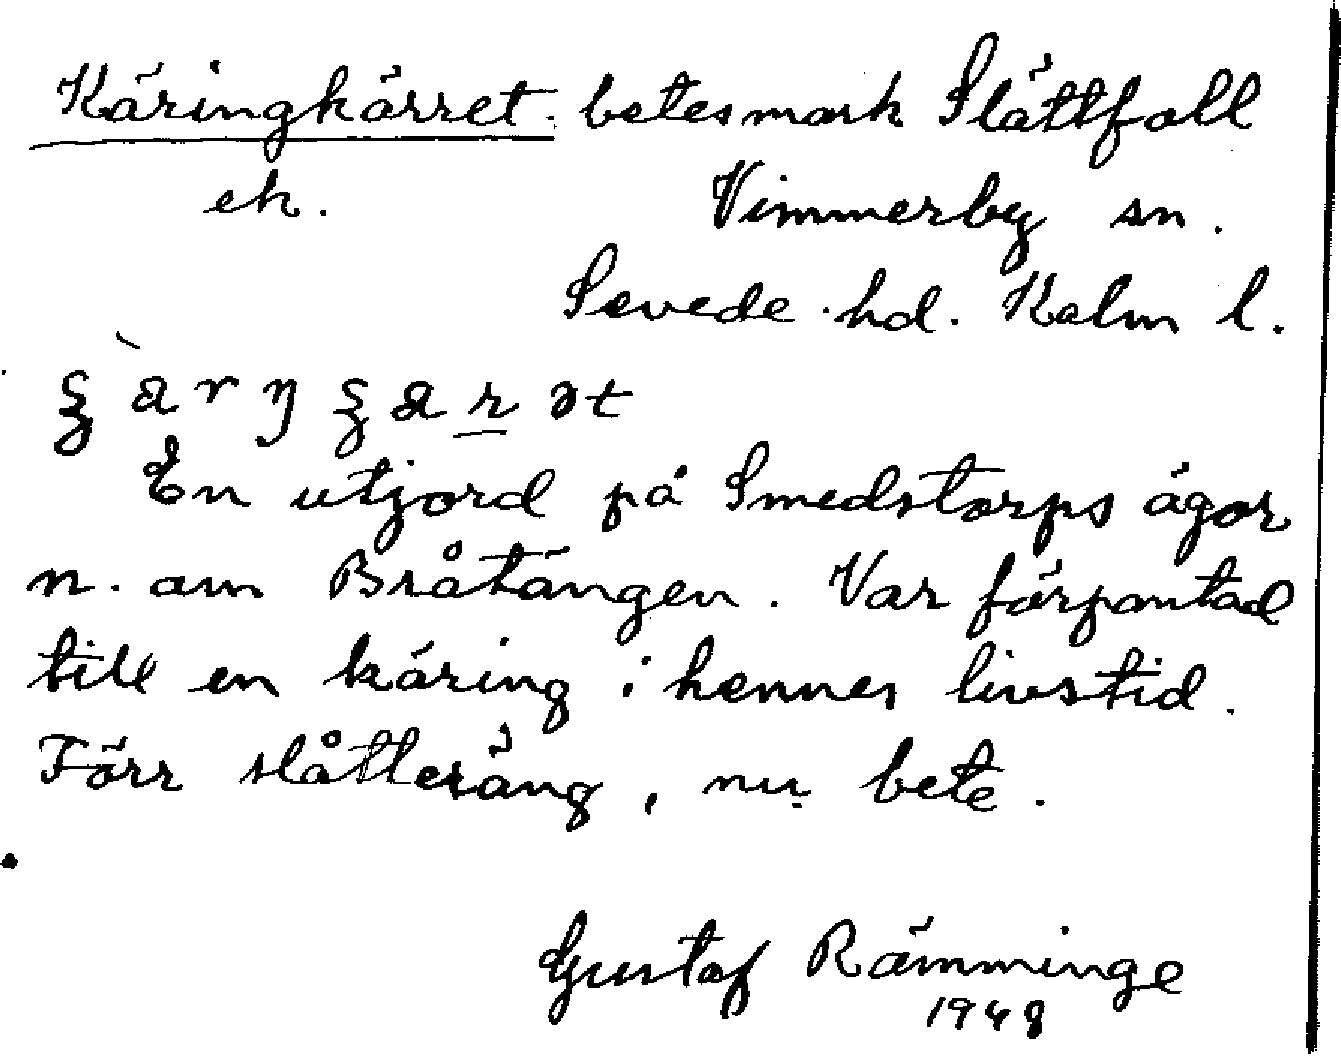 Käringkärret. betesmark Slättfall
ek. Vimmerby sn.
Sevede hd. Kalm l.
En utjord på Smedstorps ägor
n. om Bråtängen. Var förpantad
till en käring i hennes livstid.
Förr slåtteräng, nu bete.
Gustaf Rämminge
1948